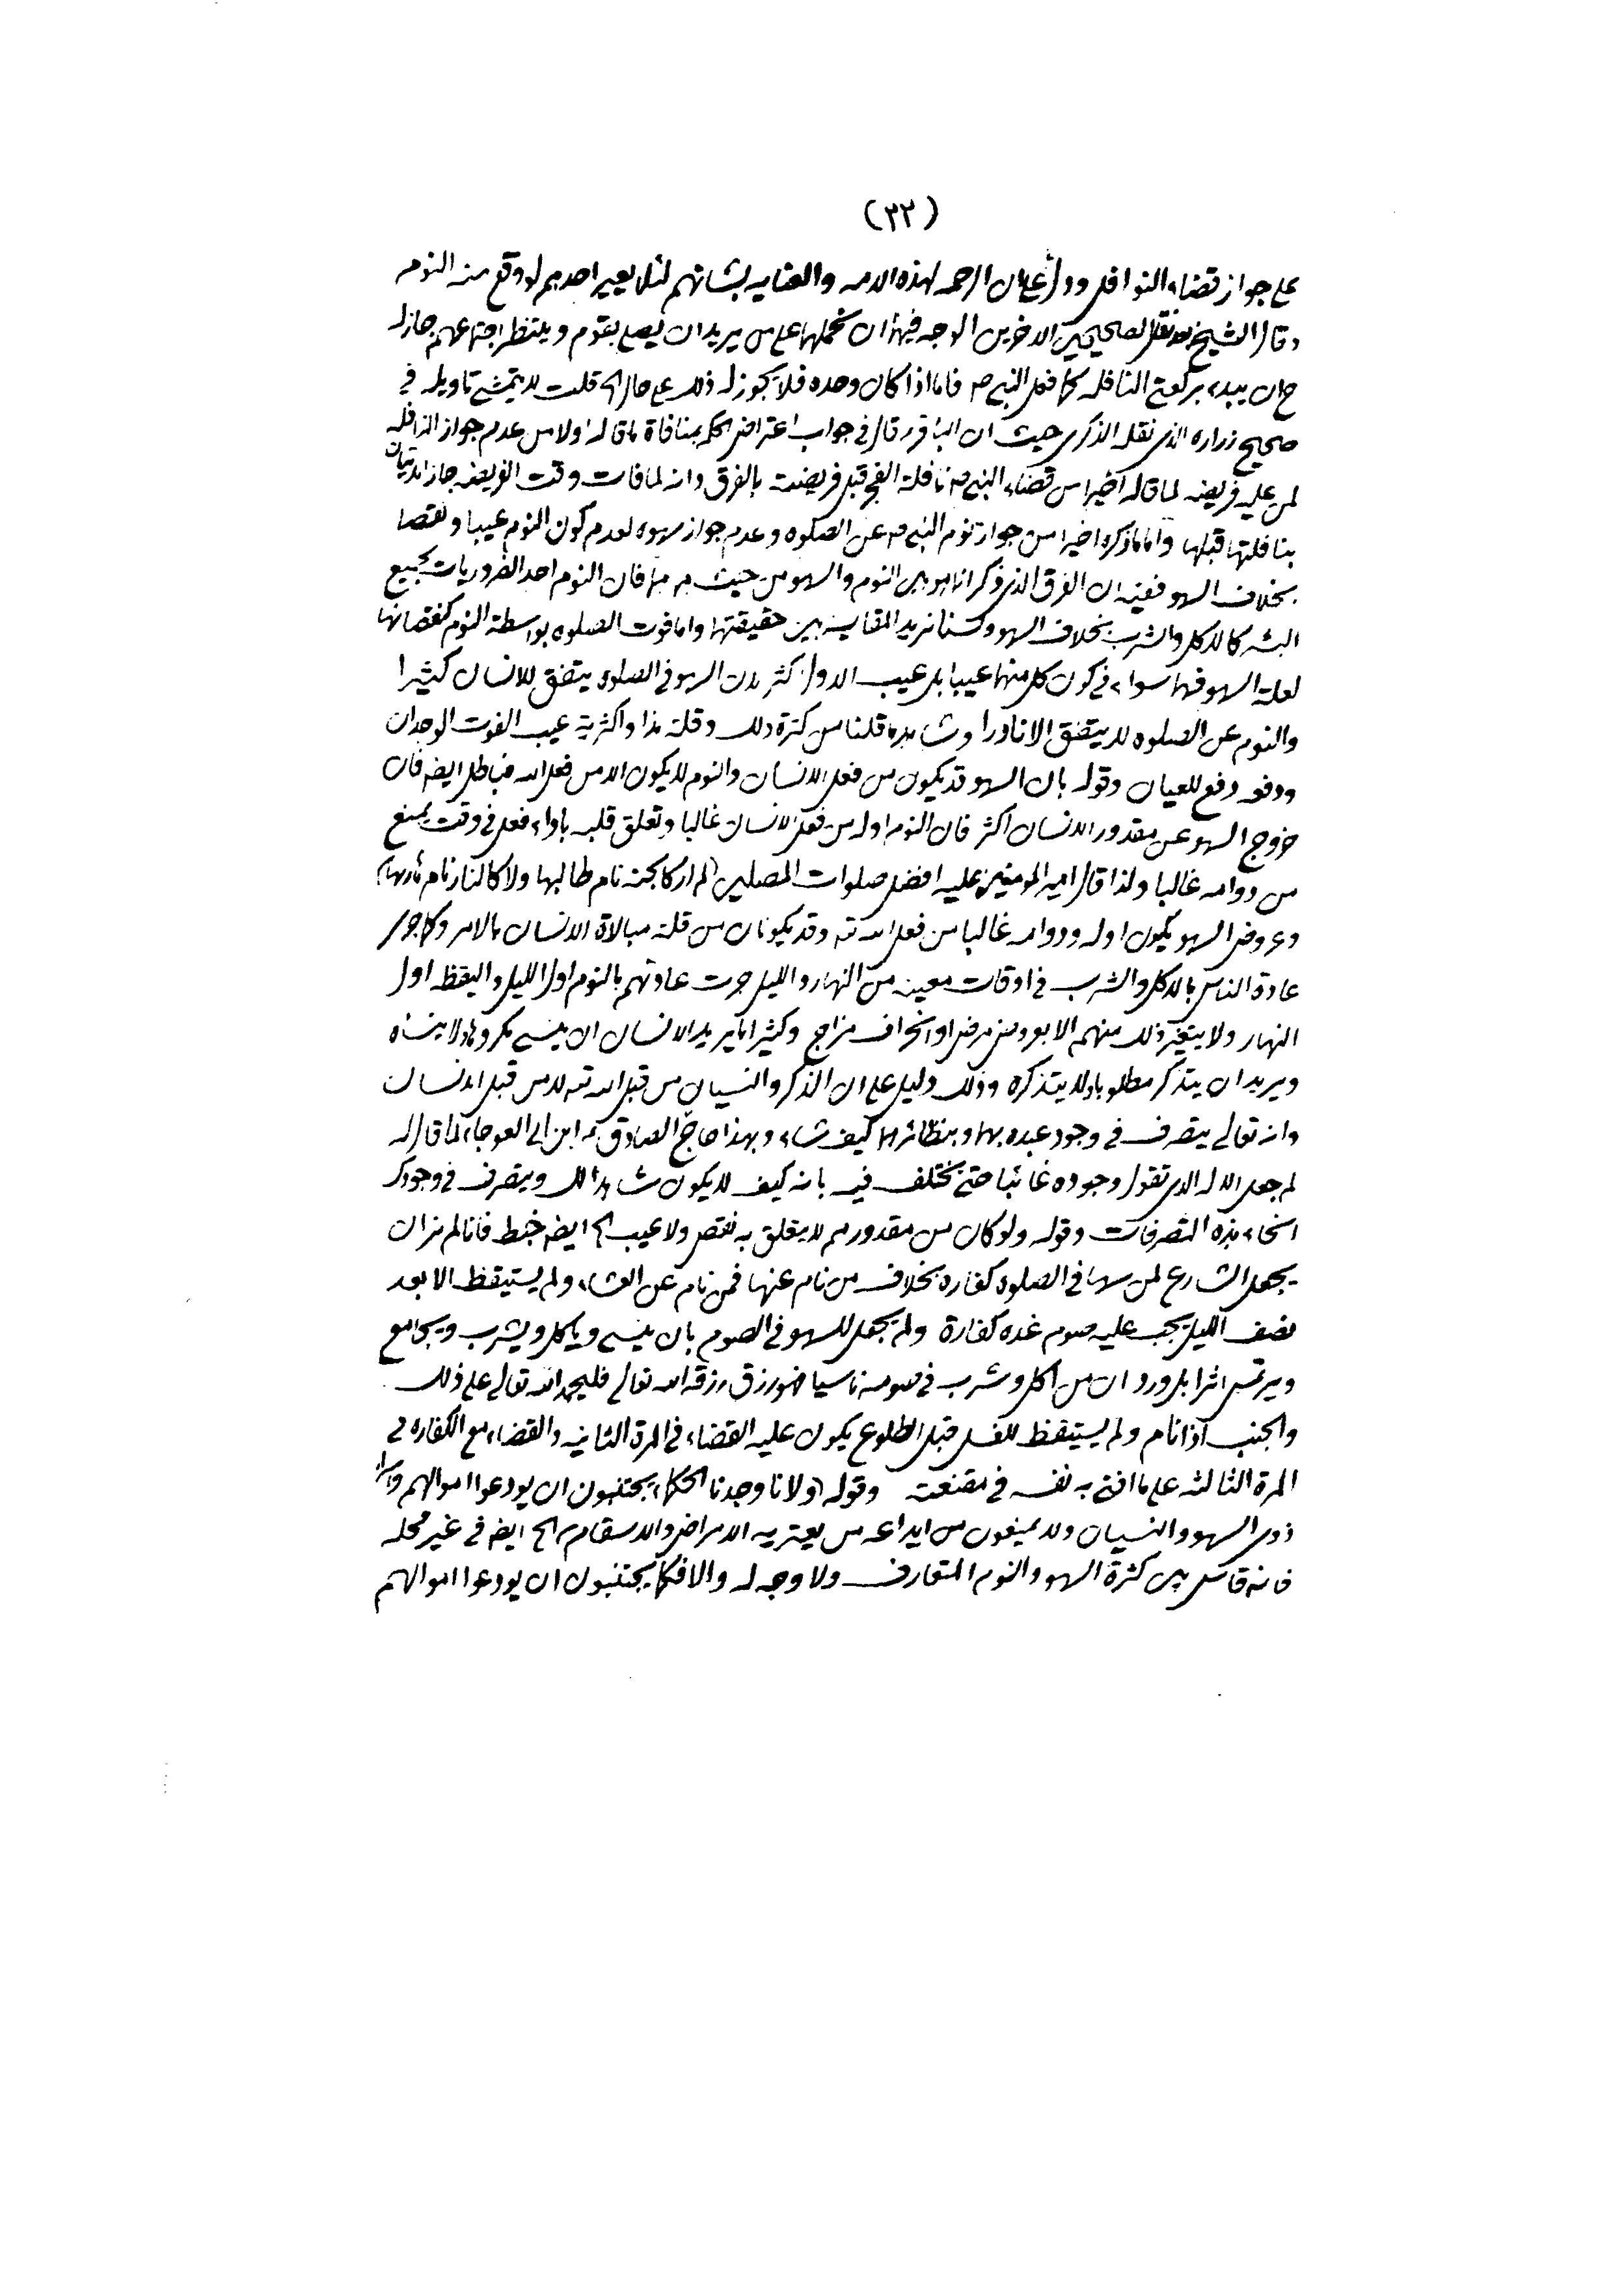 (٣٣)
على جواز قضاء النوافل ودل على ان الرحمة لهذه الامه والعنايه بشانهم لئلا يعير احدهم لو وقع منه النوم
وقال الشيخ بعد نقل الصحيحين الاخرين الوجه فيهما ان نحملهما على من يريد ان يصلي بقوم وينتظر اجتماعهم جاز له
ح ان يبدء بركعتي النافله كما فعل النبي ص فاما اذا كان وحده فلا يجوز له ذلك على حال الخ قلت لا يتمشى تاويله في
صحيح زراره الذي نقله الذكرى حيث ان الباقر ع قال في جواب اعتراض الحكم بمنافاة ما قاله اولا من عدم جواز النافله
لمن عليه فريضه لما قاله اخيرا من قضاء النبي ص نافلة الفجر قبل فريضته بالفرق وانه لما فات وقت الفريضه جاز الاتيان
بنافلتها قبلها واما ما ذكره اخيرا من جواز نوم النبي ص عن الصلوه وعدم جواز سهوه لعدم كون النوم عيبا ونقصا
بخلاف السهو ففيه ان الفرق الذي ذكر انما هو بين النوم والسهو من حيث هما هما فان النوم احد الضروريات لجميع
البشر كالاكل والشرب بخلاف السهو ولسنا نريد المقايسه بين حقيقتهما واما فوت الصلوه بواسطة النوم كنقصانها
لعلة السهو فهما سواء في كون كل منهما عيبا بل عيب الاول اكثر لان السهو في الصلوه يتفق للانسان كثيرا
والنوم عن الصلوه لا يتفق الا نادرا وشاهد ما قلنا من كثرة ذلك وقلة هذا واكثرية عيب الفوت الوجدان
ودفعه دفع للعيان وقوله بان السهو قد يكون من فعل الانسان والنوم لا يكون الا من فعل الله فباطل ايضه فان
خروج السهو عن مقدور الانسان اكثر فان النوم اوله من فعل الانسان غالبا وتعلق قلبه باداء فعل في وقت يمنع
من دوامه غالبا ولذا قال امير المومنين عليه افضل صلوات المصلين (لم ار كالجنه نام طالبها ولا كالنار نام هاربها)
وعروض السهو يكون اوله ودوامه غالبا من فعل الله تعه وقد يكونان من قلة مبالاة الانسان بالامر وكما جر
عادة الناس بالاكل والشرب في اوقات معينه من النهار والليل جرت عادتهم بالنوم اول الليل واليقظه اول
النهار ولا يتغير ذلك منهم الا بعروض مرض او انحراف مزاج وكثيرا ما يريد الانسان ان ينسى مكروها ولا ينساه
ويريد ان يتذكر مطلوبا ولا يتذكره وذلك دليل على ان الذكر والنسيان من قبل الله تعه لا من قبل الانسان
وانه تعالى يتصرف في وجود عبده بهما وبنظائرهما كيف شاء وبهذا حاج الصادق ع ابن ابي العوجاء لما قال له
لم جعل الاله الذي تقول وجوده غائبا حتى يختلف فيه بانه كيف لا يكون شاهدا لك ويتصرف في وجودك
انحاء هذه التصرفات وقوله ولو كان من مقدورهم لا يتعلق به نقص ولا عيب الخ ايضه خبط فانا لم نر ان
يجعل الشارع لمن سها في الصلوه كفاره بخلاف من نام عنها فمن نام عن العشاء ولم يستيقظ الا بعد
نصف الليل يجب عليه صوم غده كفارة ولم يجعل للسهو في الصوم بان ينسى وياكل ويشرب ويجامع
ويرتمس اثرا بل ورد ان من اكل وشرب في صومه ناسيا فهو رزق رزقه الله تعالى فليحمد الله تعالى على ذلك
والجنب اذا نام ولم يستيقظ للغسل قبل الطلوع يكون عليه القضاء في المرة الثانيه والقضاء مع الكفاره في
المرة الثالثه على ما افتى به نفسه في مقنعته وقوله (ولانا وجدنا الحكماء يجتنبون ان يودعوا اموالهم واسرار
ذوي السهو والنسيان ولا يمنعون من ايداعه من يعتريه الامراض والاسقام الخ ايضه في غير محله
فانه قاس بين كثرة السهو والنوم المتعارف ولا وجه له والا فكما يجتنبون ان يودعوا اموالهم